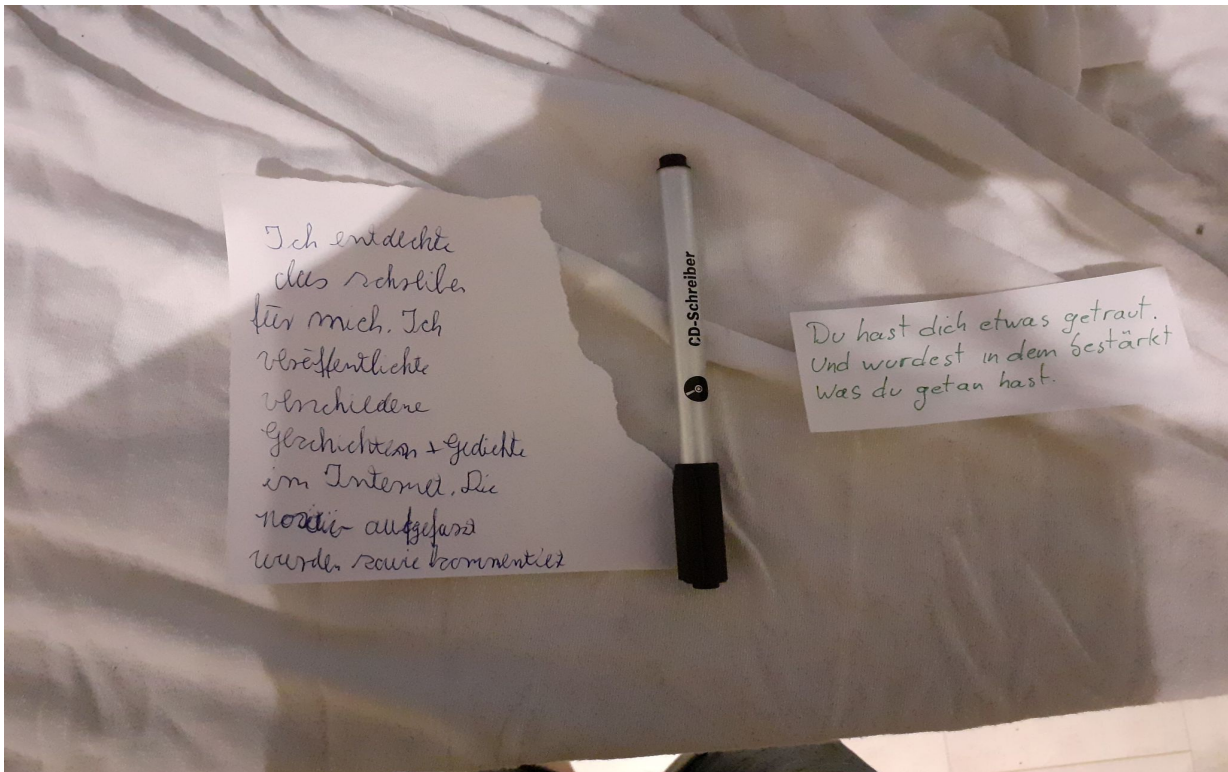 Ich entdeckte
das schreiben
für mich. Ich
veröffentlichte
verschiedene
Geschichten + Gedichte
im Internet. Die
aufgefasst
wurden sowie kommentiert
CD-Schreiber
Du hast dich etwas getraut.
Und wurdest in dem bestärkt
Was du getan hast.